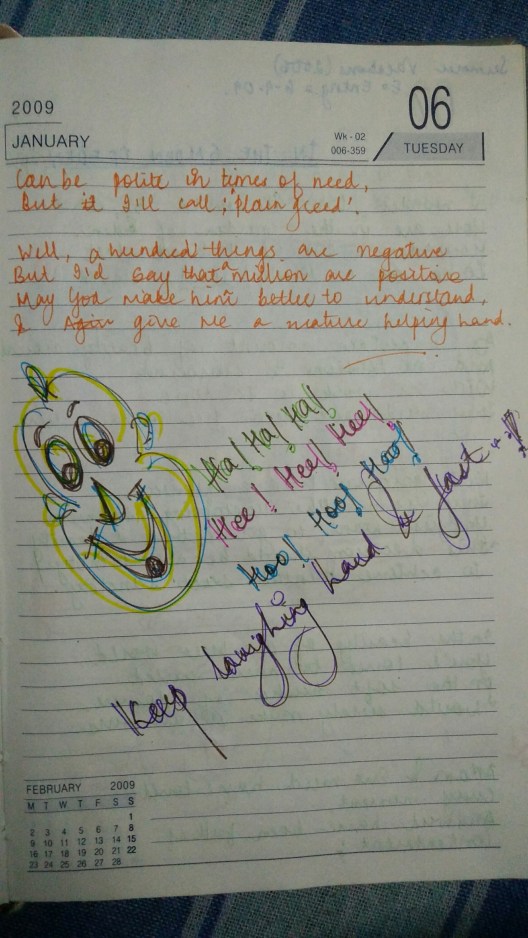 2009
06
JANUARY
Wk - 02
006-359
TUESDAY
Can be polite in times of need,
But it I'll call ; 'plain greed'.
Well, a hundred things are negative
But I'd say that a million are positive
May God make him better to understand,
& Again give me a mature helping hand.
Ha! Ha! Ha!!
Hee! Hee!! Hee!!
Hoo! Hoo! Hoo!!
Keep laughing hard & fast
FEBRUARY 2009
M T W T F S S
1
2 3 4 5 6 7 8
9 10 11 12 13 14 15
16 17 18 19 20 21 22
23 24 25 26 27 28